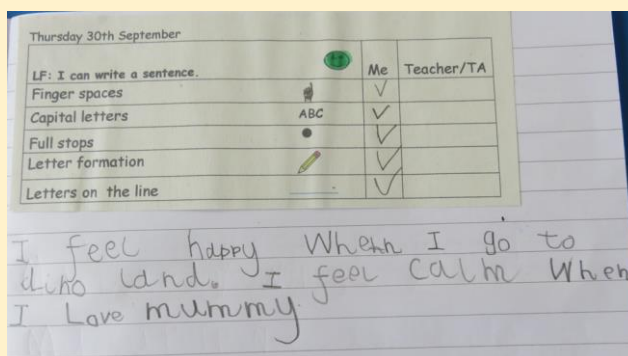 Thursday 30th September
LF: I can write a sentence.
Me
Teacher/TA
Finger spaces
Capital letters
ABC
Full stops
Letter formation
Letters on the line
I feel happy Whehn I go to
dino land. I feel calm When
I Love mummy